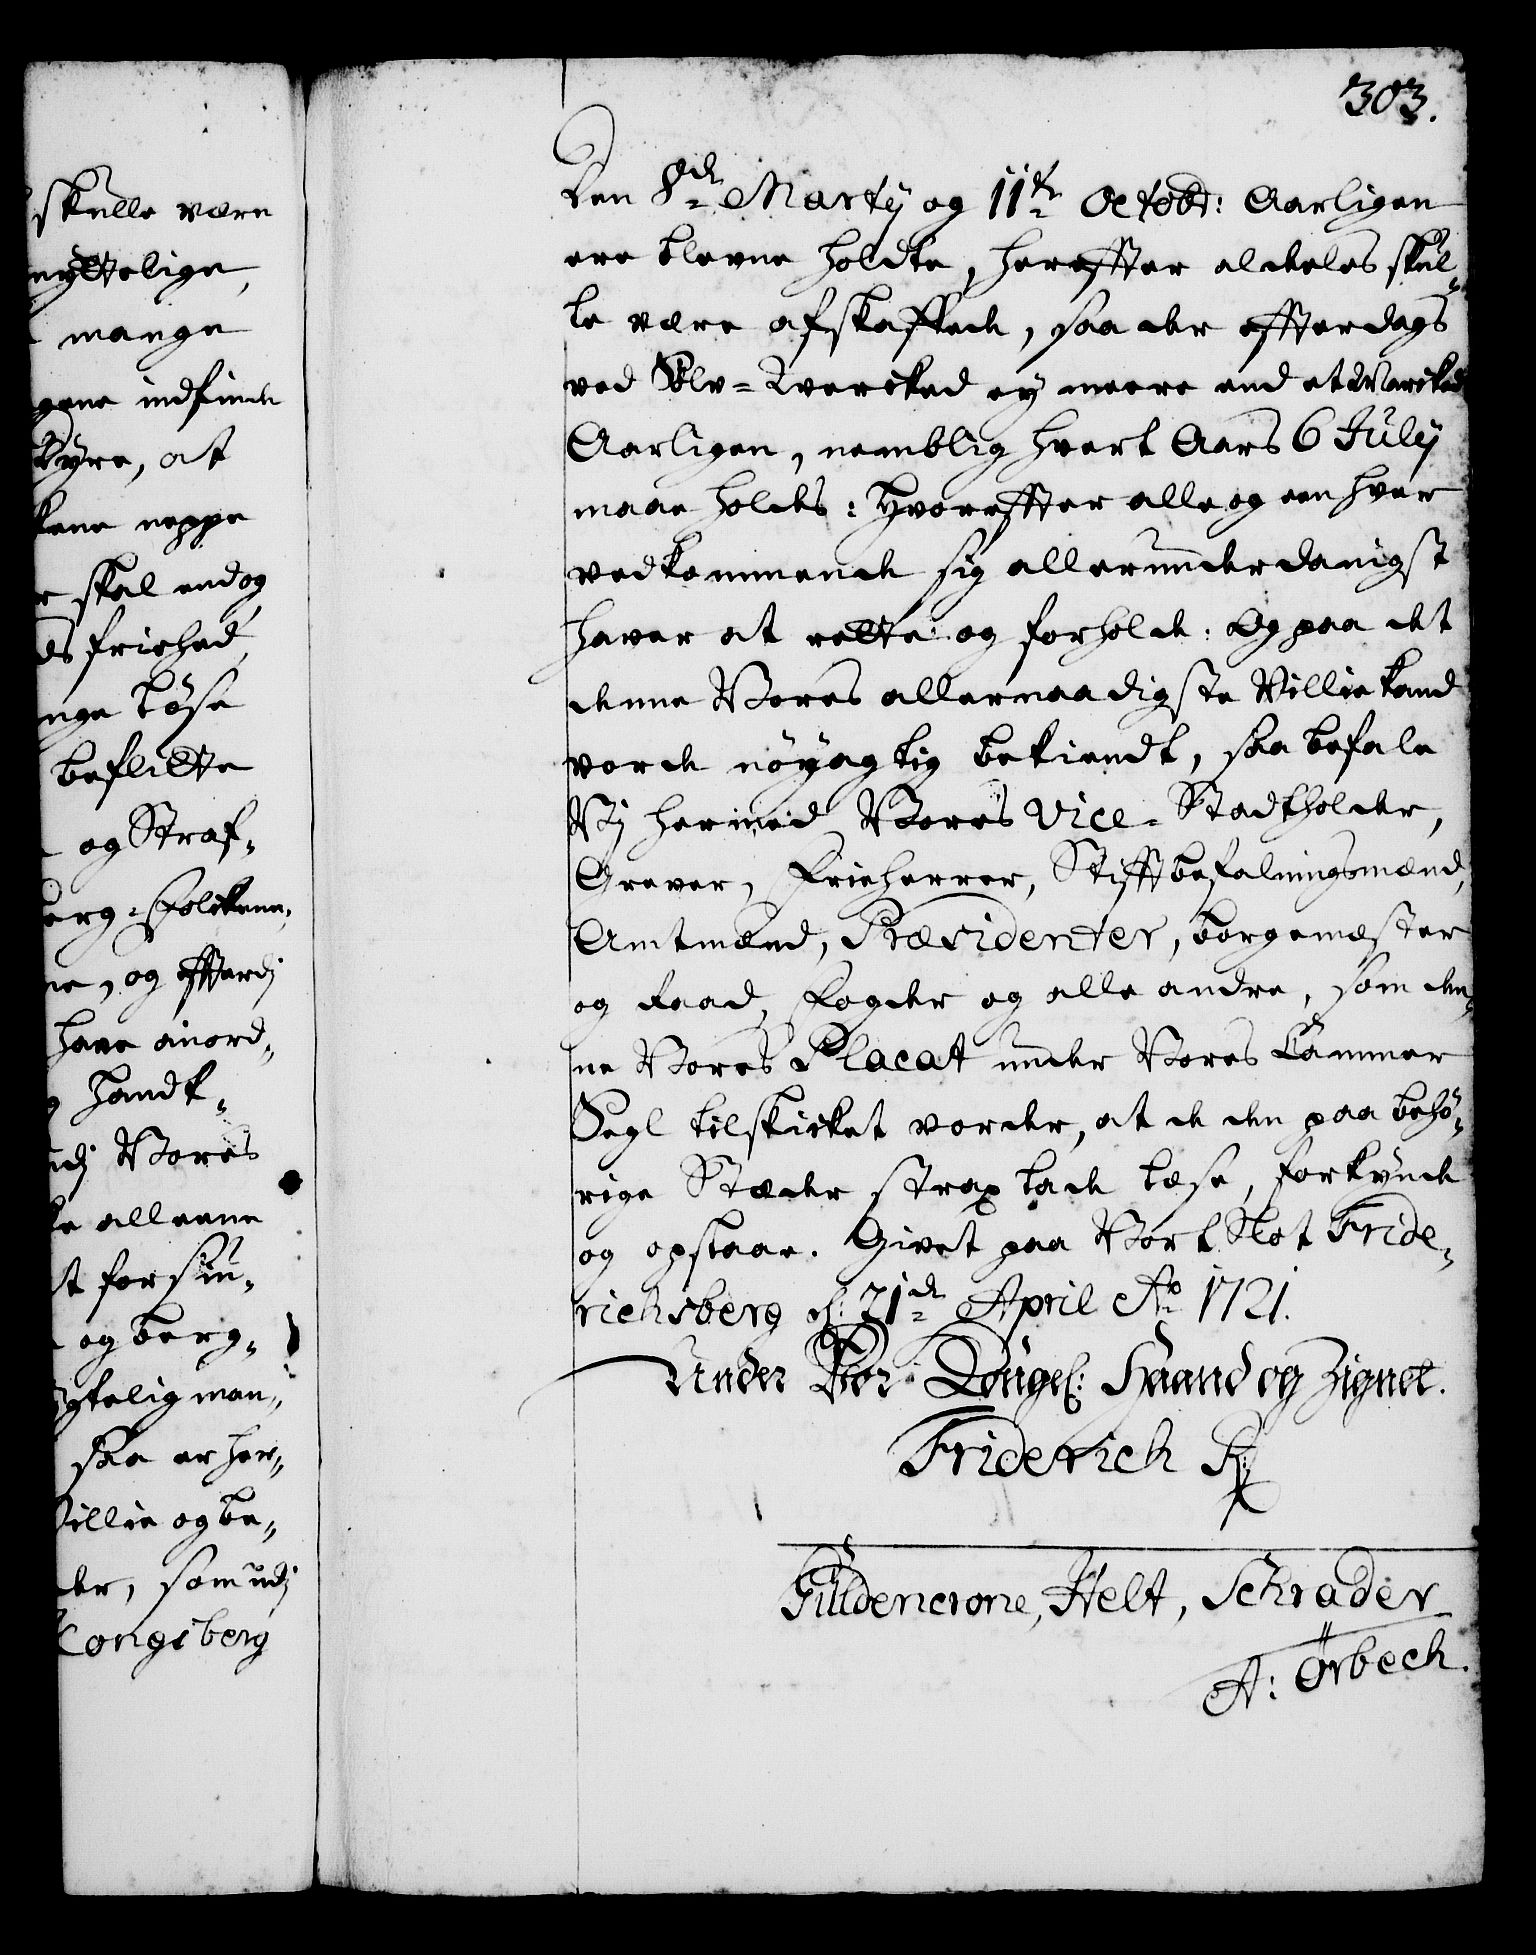 skulle være
nyttelige,
mange
gene indfinde
Kyre, at
kene neppe
skal endog
ds friehed,
nge løse
beflitte
og Straf-
berg-Folkene,
ne, og efterdj
have anord-
handt-
udj Vores
ke alleene
t forsiu-
og berg-
gtelig man-
saa er her-
Villie og be-
der, som udj
Kongsberg
303.
den 8de Martij og 11te Octobr: Aarligen
ere blevne holdte, herefter aldeles skul-
le være afskaffede, saa der efterdags
ved Sölv-Vercked ey meere end et Marcked
Aarligen, nemblig hvert Aars 6 Julij
maae holdes: Hvorefter alle og een hver
vedkommende sig allerunderdanigst
haver at rette og forholde: Og paa det
denne Vores allernaadigste Villie kand
vorde nöyagtig bekiendt, saa befale
Vj hermed Vores Vice-Stadtholder,
Grever, Frieherrer, Stiftbefalningsmænd,
Amtmænd, Præsidenter, borgemæster
og Raad, Fogder og alle andre, som den-
ne Vores Placat under Vores Cammer
Segl tilskicket vorder, at de den paa behö-
rige Stæder strax lade læse, forkynde
og opslaae. Givet paa Vort Slot Fride-
richsberg d: 21de April Ao 1721.
Under Vor Kongel: Haand og Zignet.
Friderich R:
Güldencrone, Helt, Schrader
A: Ørbech.